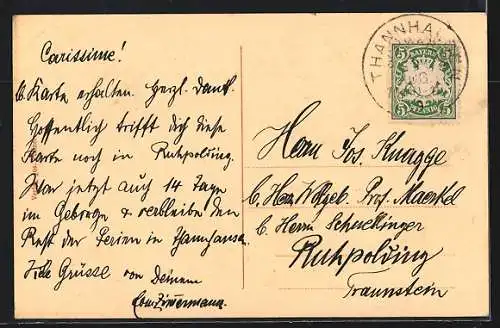 Carissime!
b. Karte erhalten. Herzl. Dank.
Hoffentlich trifft dich diese
Karte noch in Ruhpolding.
War jetzt auch 14 Tage
im Gebirge & verbleibe den
Rest der Ferien in Thannhausen
Grüsse von Deinem
Zimmermann.
THANNHAUSEN
BAYERN
5 5
5 5
Herrn Jos. Knagge
b. Herrn Prof. Maerkel
b. Herrn Schucklinger
Ruhpolding
Traunstein